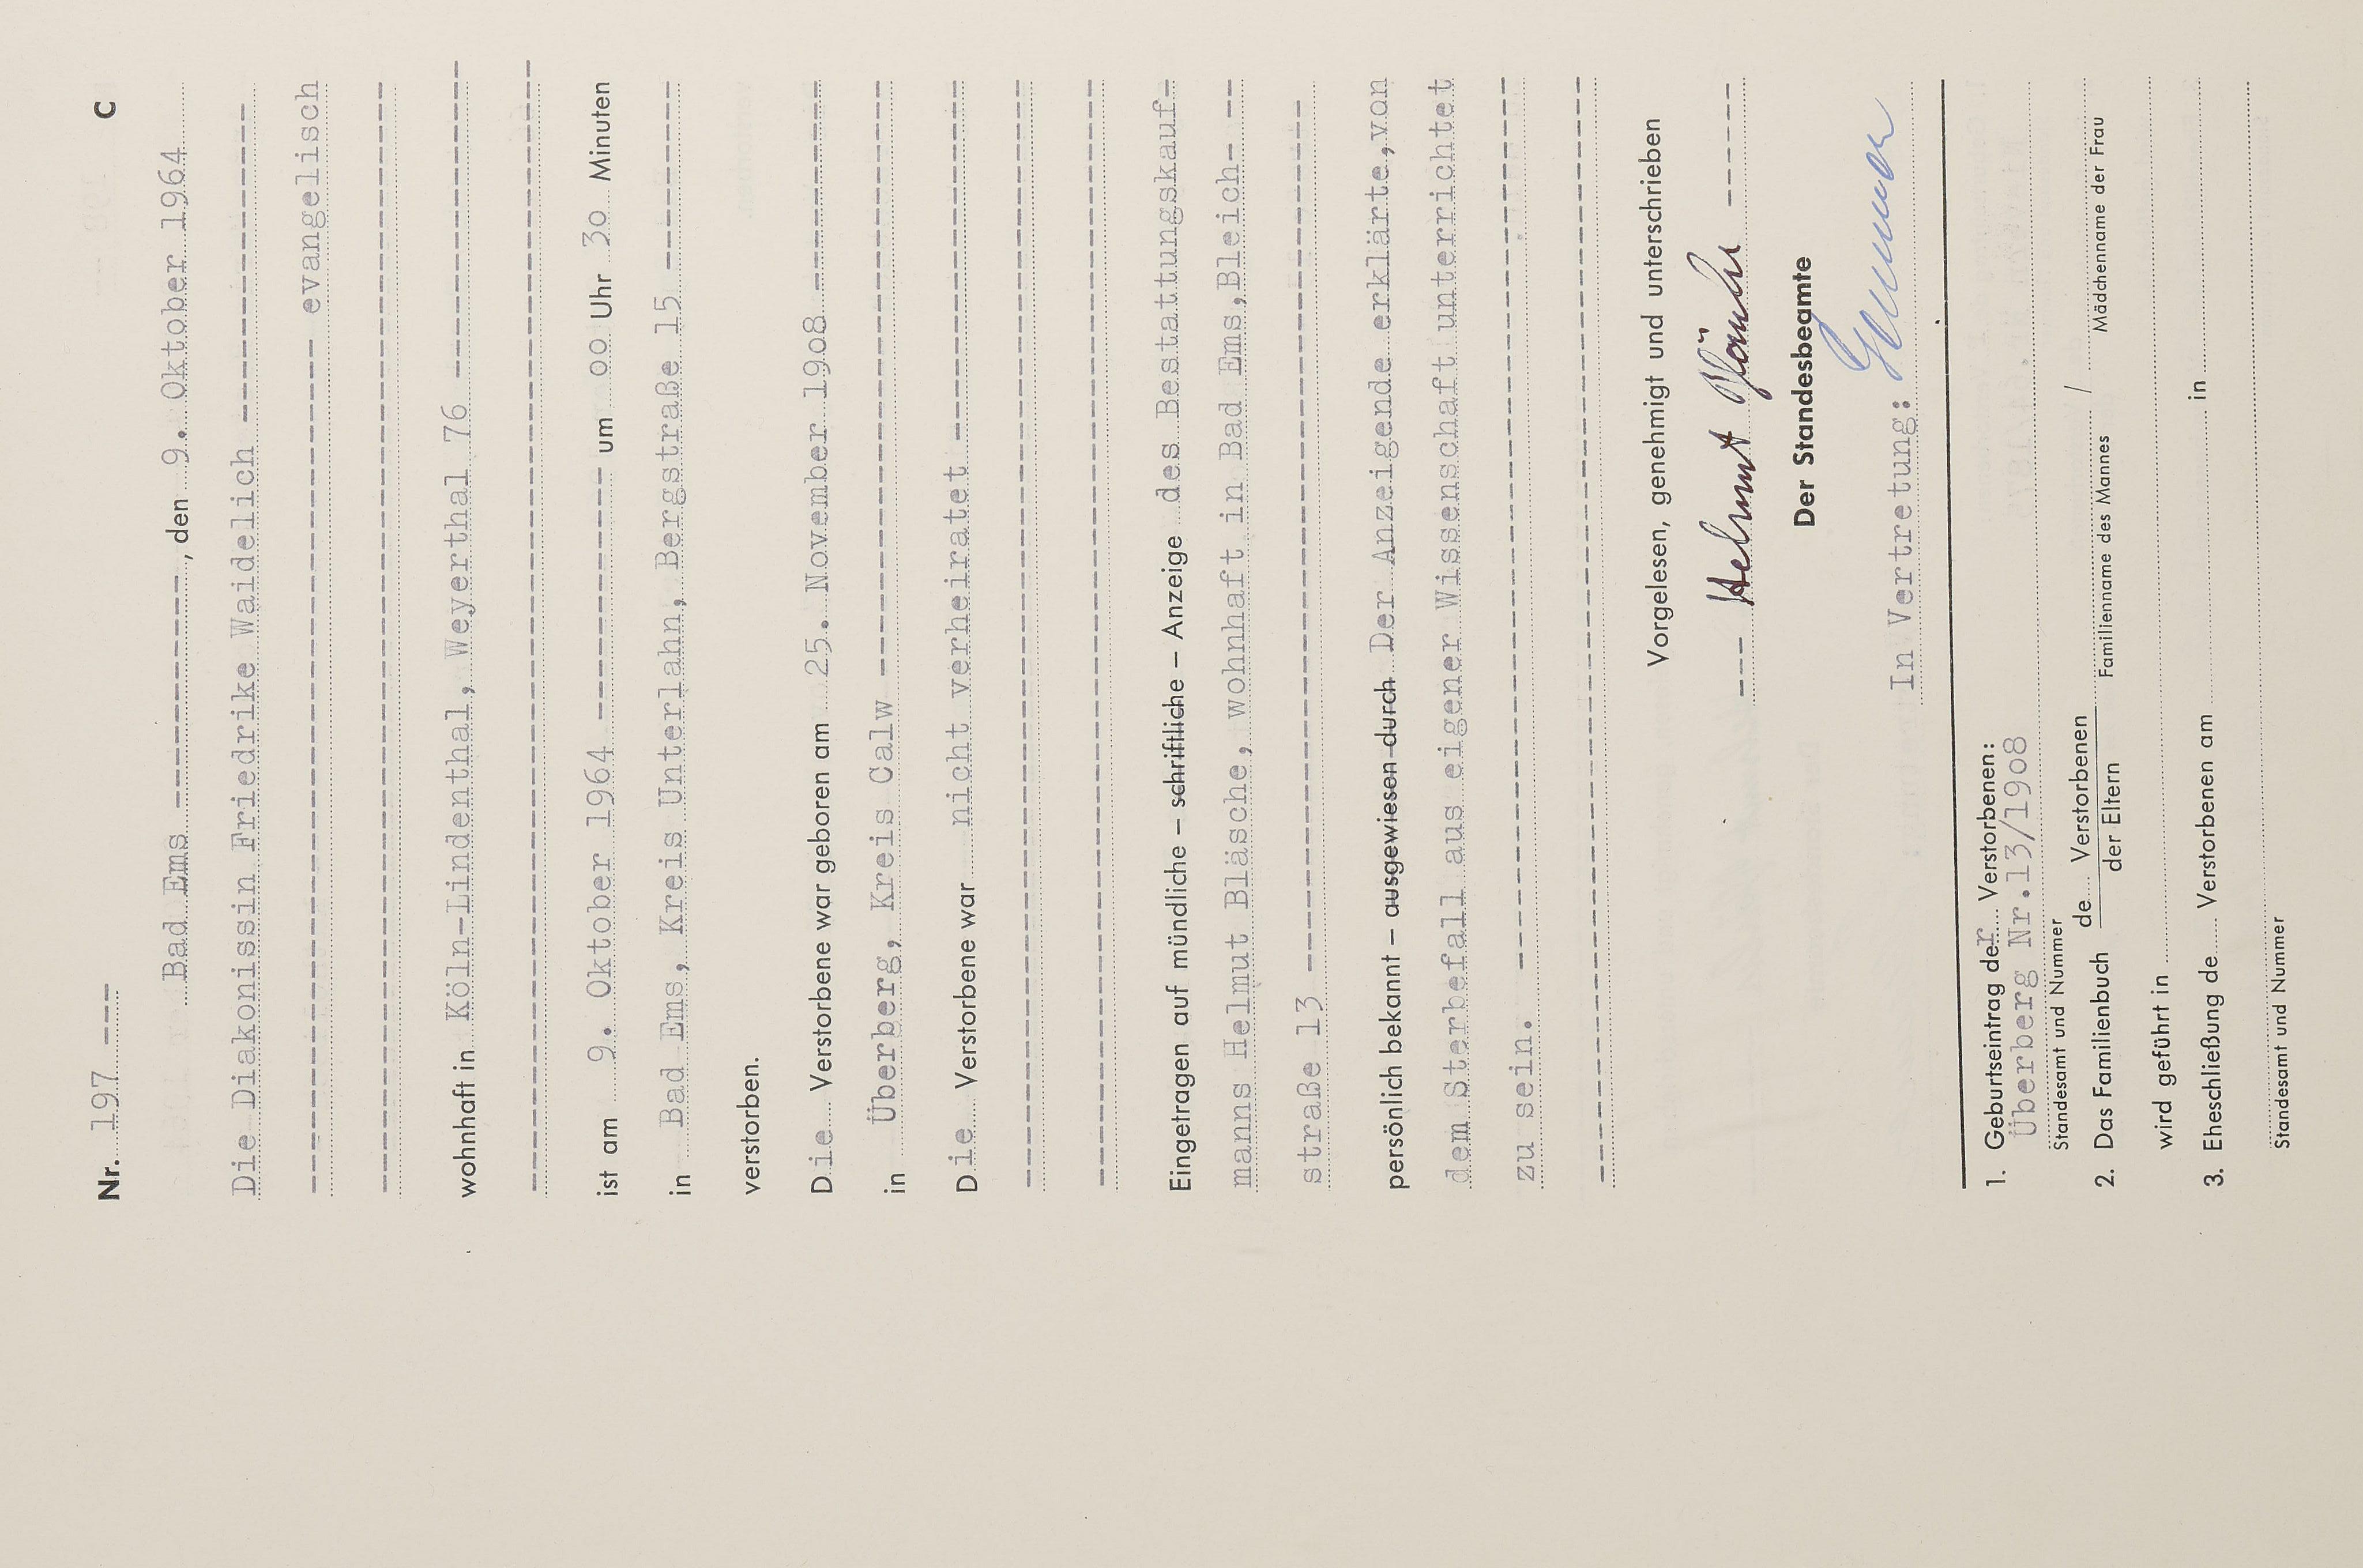 Nr. 197 --- C
Bad Ems ----------, den 9. Oktober 1964
Die Diakonissin Friedrike Waidelich ----------
---------- evangelisch
wohnhaft in Köln-Lindenthal, Weyerthal 76 ----------
ist am 9. Oktober 1964 ---------- um 00 Uhr 30 Minuten
in Bad Ems, Kreis Unterlahn, Bergstraße 15 ----------
verstorben.
Die Verstorbene war geboren am 25. November 1908 ----------
in Überberg, Kreis Calw ----------
Die Verstorbene war nicht verheiratet ----------
Eingetragen auf mündliche – schriftliche – Anzeige des Bestattungskauf-
manns Helmut Bläsche, wohnhaft in Bad Ems,Bleich- --
straße 13 ----------
persönlich bekannt – ausgewiesen durch Der Anzeigende erklärte,von
dem Sterbefall aus eigener Wissenschaft unterrichtet
zu sein. ----------
Vorgelesen, genehmigt und unterschrieben
--- Helmut Bläsche -----
Der Standesbeamte
In Vertretung:
1. Geburtseintrag der Verstorbenen:
Überberg Nr.13/1908
Standesamt und Nummer
2. Das Familienbuch de Verstorbenen / der Eltern /
Familienname des Mannes Mädchenname der Frau
wird geführt in
3. Eheschließung de Verstorbenen am in
Standesamt und Nummer